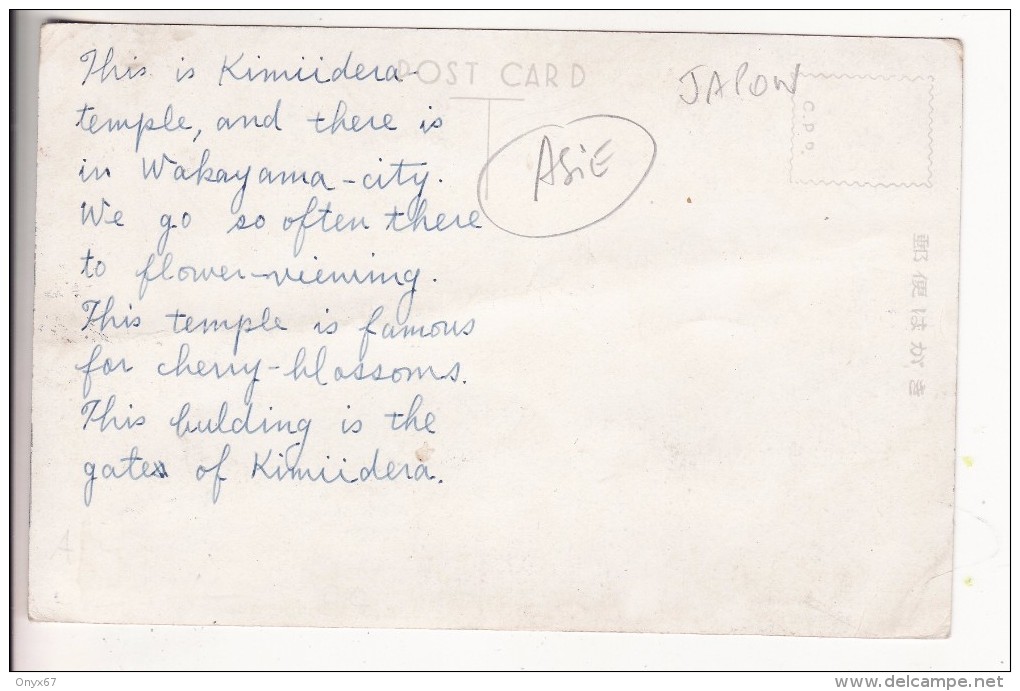 This is Kimiidera-
temple, and there is
in Wakayama-city.
We go so often there
to flower-viewing.
This temple is famous
for cherry-blossoms.
This bulding is the
gate of Kimiidera.
POST CARD
JAPON
ASIE
C.P.O.
郵便はがき
A
Onyx67
www.delcampe.net